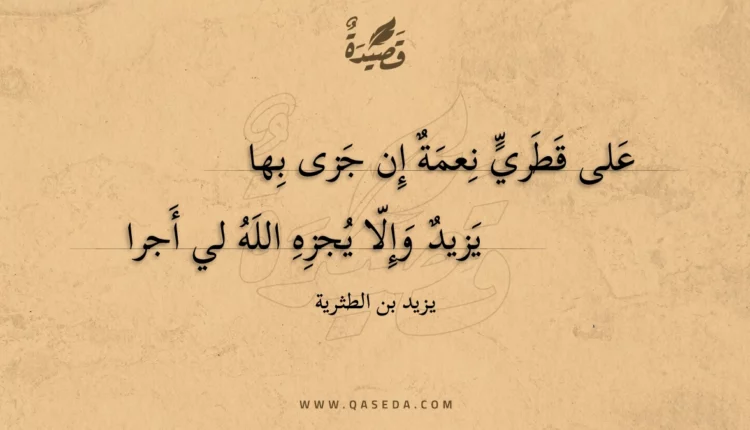 قَصِيدَةٌ
عَلى قَطَريٍّ نِعمَةٌ إِن جَزى بِها
يَزيدٌ وَإِلّا يُجزِهِ اللَهُ لي أَجرا
يزيد بن الطثرية
WWW.QASEDA.COM